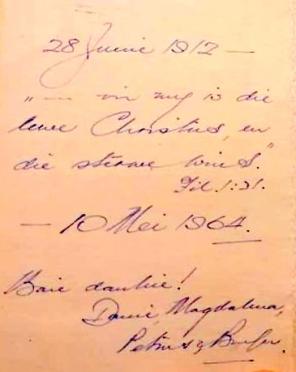 28 Junie 1912 —
"— vir my is die
lewe Christus, en
die sterwe wins."
Fil. 1:21.
— 10 Mei 1964.
Baie dankie!
Danie, Magdalena,
Petrus & Burger.